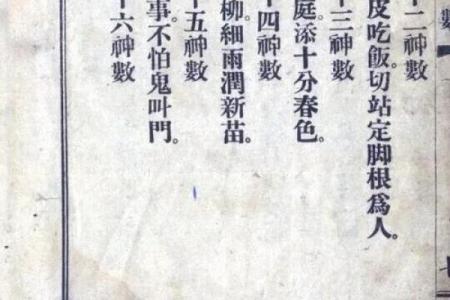 數
十二神數
皮吃飯。切站定脚根爲人。
十三神數
庭添十分春色。
十四神數
柳。細雨潤新苗。
十五神數
事。不怕鬼叫門。
十六神數